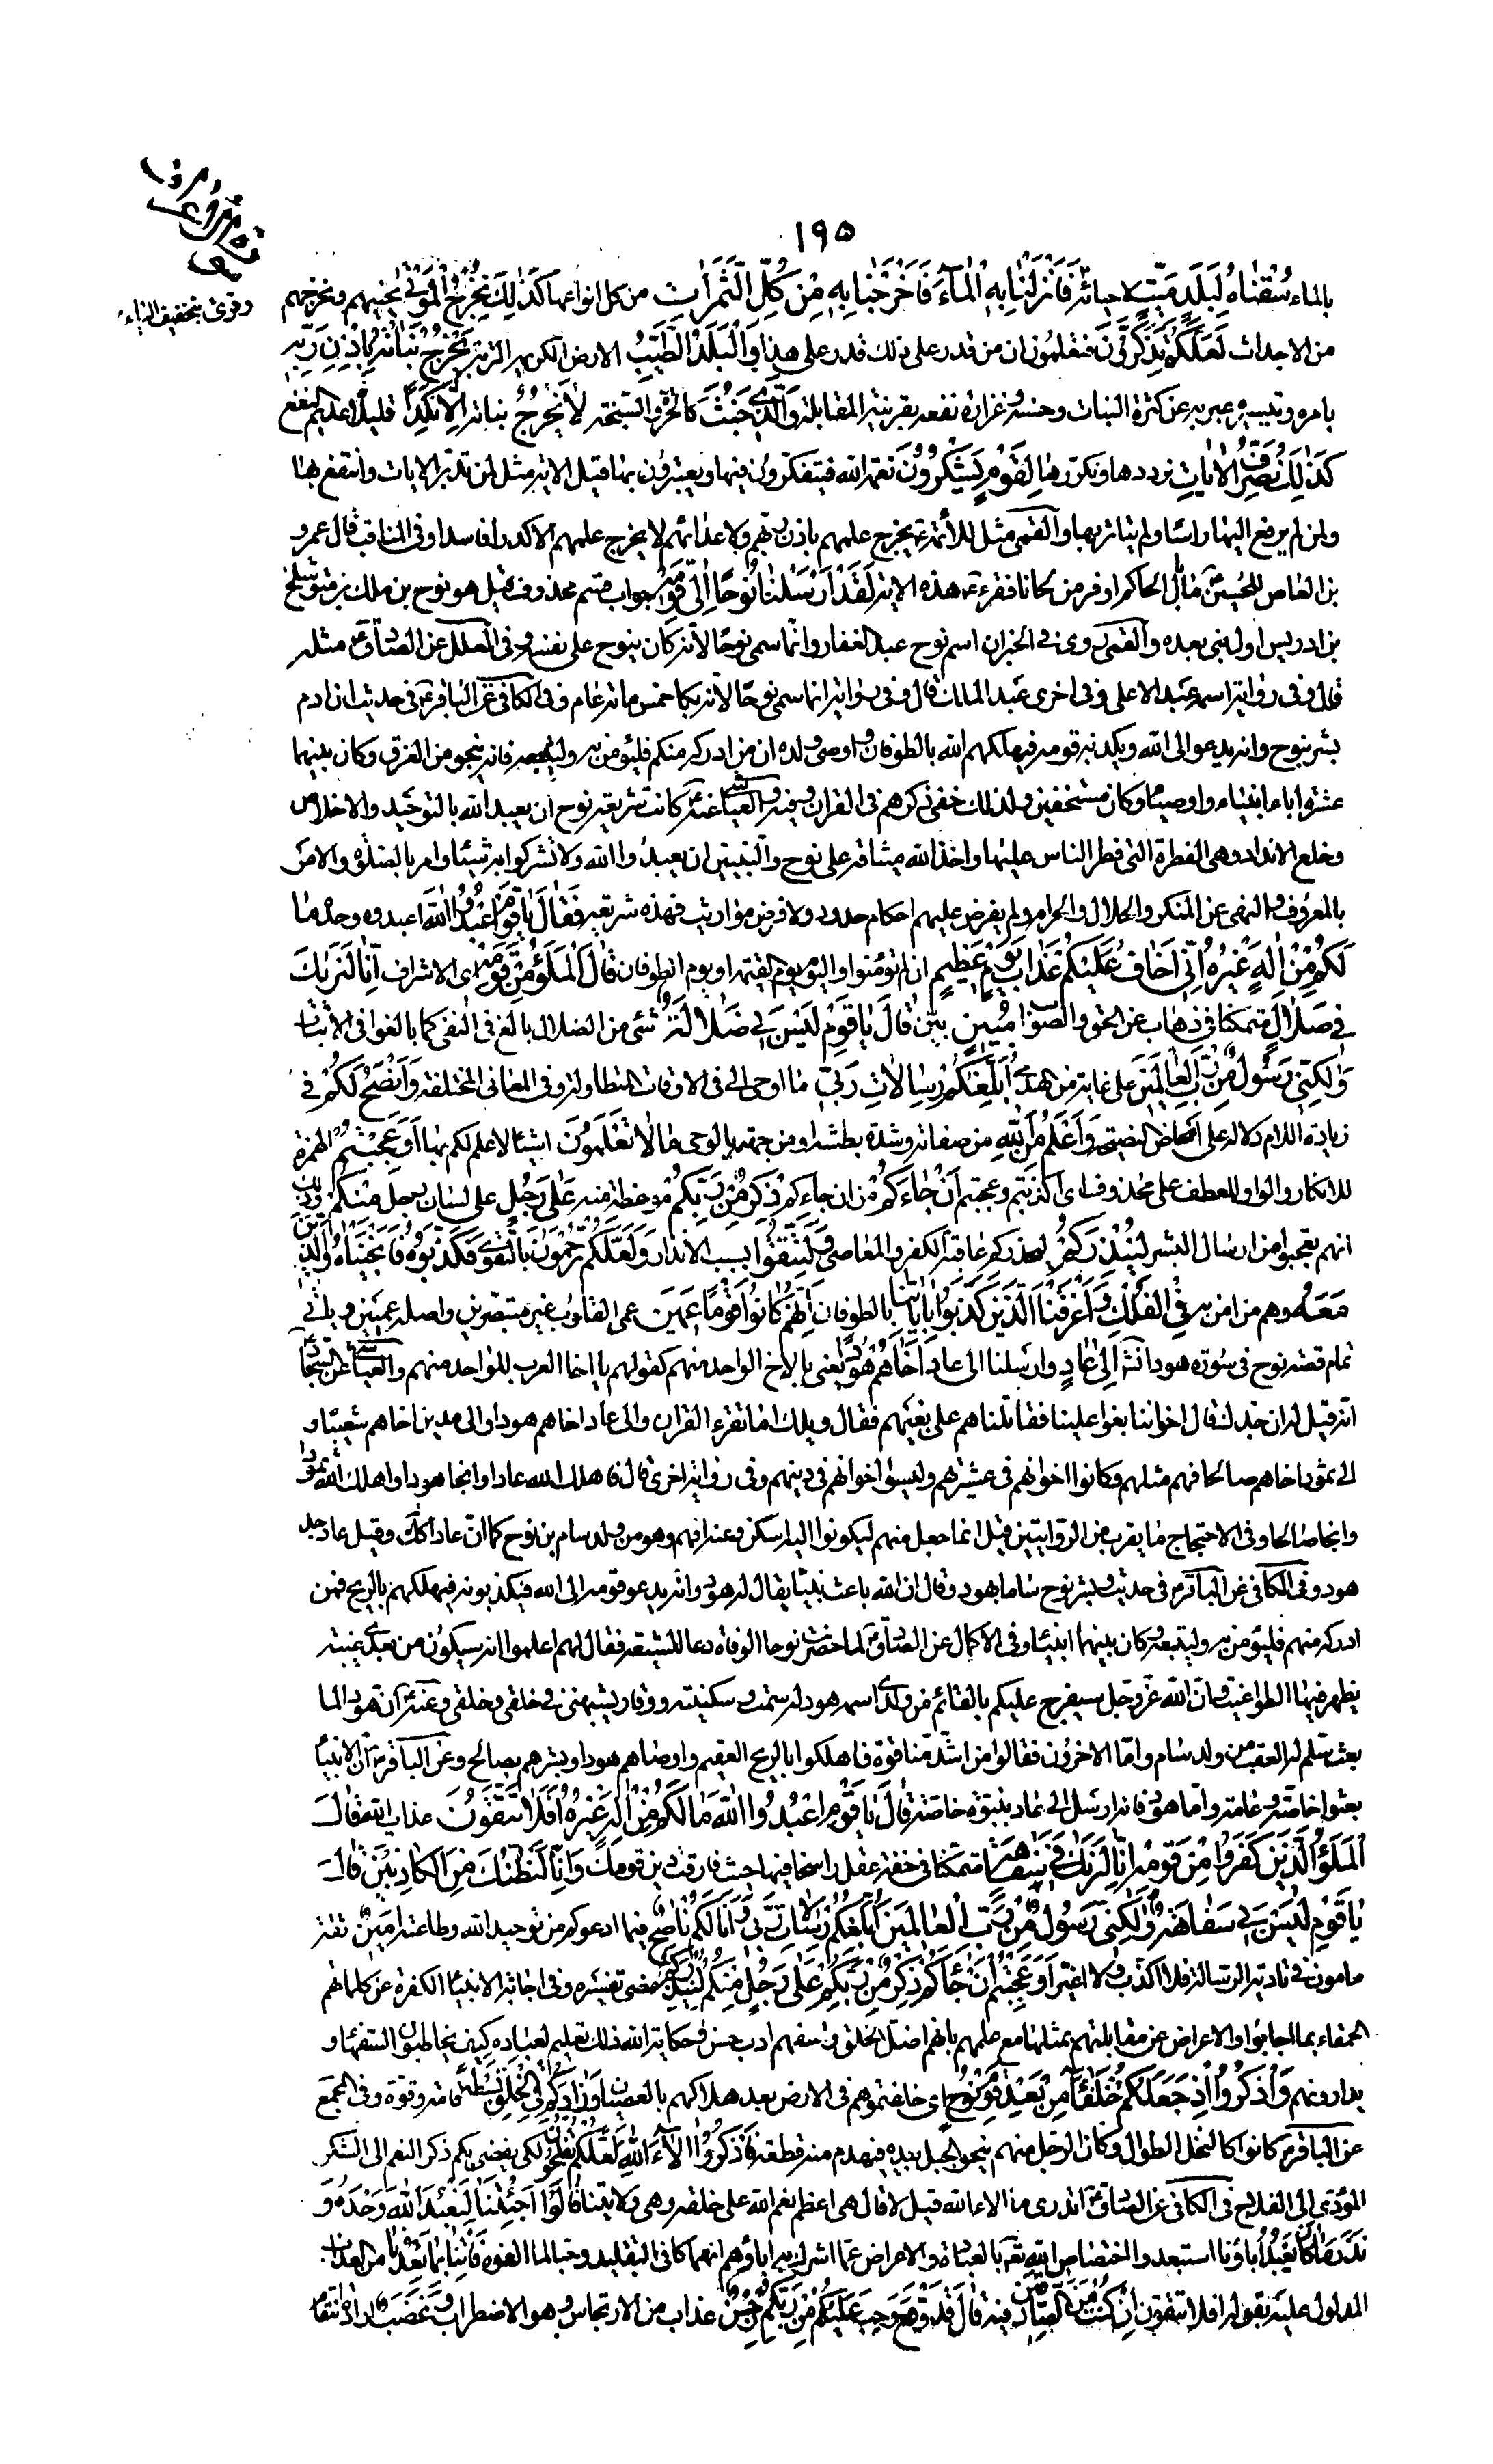 ١٩٥
بالماء سُقْنٰاهُ لِبَلَدٍ مَيِّتٍ لاحيائه فَاَنْزَلْنٰا بِهِ الْمٰآءَ فَاَخْرَجْنٰا بِهِ مِنْ كُلِّ الثَّمَرٰاتِ من كل انواعها كَذٰلِكَ نُخْرِجُ الْمَوْتىٰ نحييهم ونخرجهم
من الاجداث لَعَلَّكُمْ تَذَكَّرُونَ فتعلمون ان من قدر على ذلك قدر على هذا وَالْبَلَدُ الطَّيِّبُ الارض الكريم التربة يَخْرُجُ نَبٰاتُهُ بِاِذْنِ رَبِّهِ
وقرئ بتخفيف الذال
بامره وتيسيره عبر به عن كثرة النبات وحسنه وغزارة نفعه بقرينة المقابلة وَالَّذي خَبُثَ كالحرة والسبخة لٰا يَخْرُجُ نباته اِلّٰا نَكِدًا قليلا عديم النفع
كَذٰلِكَ نُصَرِّفُ الْاٰيٰاتِ نرددها ونكررها لِقَوْمٍ يَشْكُرُونَ نعمة الله فيتفكرون فيها ويعتبرون بها قيل الاية مثل لمن تدبر الايات وانتفع بها
ولمن لم يرفع اليها راسا ولم يتاثر بها والقمي مثل للأئمة يخرج علمهم باذن ربهم ولاعدائهم لا يخرج علمهم الا كدرا فاسدا وفى المناقب قال عمرو
بن العاص للحسين ما بال لحاكم اوفر من لحانا فقرء هذه الاية لَقَدْ اَرْسَلْنٰا نُوحًا اِلىٰ قَوْمِهِ جواب قسم محذوف قيل هو نوح بن ملك بن متوشلخ
بن ادريس اول نبى بعده والقمى روى فى الخبر ان اسم نوح عبد الغفار وانما سمى نوحا لانه كان ينوح على نفسه وفى العلل عن الصادق مثله
قال وفى رواية اسمه عبد الاعلى وفى اخرى عبد الملك قال وفى رواية انما سمى نوحا لانه بكا خمسمائة عام وفى الكافى عن الباقر فى حديث ان ادم
بشر بنوح وانه يدعو الى الله ويكذبه قومه فيهلكهم الله بالطوفان واوصى ولده ان من ادركه منكم فليؤمن به وليتبعه فانه ينجو من الغرق وكان بينهما
عشرة اباء انبياء واوصياء وكان مستخفين ولذلك خفى ذكرهم فى القران وفيه والعياشى عنه كانت شريعة نوح ان يعبد الله بالتوحيد والاخلاص
وخلع الانداد وهى الفطرة التى فطر الناس عليها واخذ الله ميثاقه على نوح والنبيين ان يعبدوا الله ولا تشركوا به شيئا وامر بالصلوة والامر
بالمعروف والنهى عن المنكر والحلال والحرام ولم يفرض عليهم احكام حدود ولا فرض مواريث فهذه شريعته فَقٰالَ يٰا قَوْمِ اعْبُدُوا اللّٰهَ اعبدوه وحده مٰا
لَكُمْ مِنْ اِلٰهٍ غَيْرُهُ اِنّي اَخٰافُ عَلَيْكُمْ عَذٰابَ يَوْمٍ عَظيمٍ ان لم تؤمنوا واليوم يوم القيمة او يوم الطوفان قٰالَ الْمَلَؤُ مِنْ قَوْمِهِ اى الاشراف اِنّٰا لَنَرٰيكَ
في ضَلٰالٍ متمكنا فى ذهاب عن الحق والصواب مُبينٍ بيّن قٰالَ يٰا قَوْمِ لَيْسَ بي ضَلٰالَةٌ شئ من الضلال بالغ فى النفى كما بالغوا فى الاثبات
وَلٰكِنّي رَسُولٌ مِنْ رَبِّ الْعٰالَمينَ على غاية من الهدى اُبَلِّغُكُمْ رِسٰالٰاتِ رَبّي ما اوحى الى فى الاوقات المتطاولة وفى المعانى المختلفة وَاَنْصَحُ لَكُمْ فى
زيادة اللام دلالة على امحاض النصيحة وَاَعْلَمُ مِنَ اللّٰهِ من صفاته وشدة بطشه او من جهته بالوحى مٰا لٰا تَعْلَمُونَ اشياء لا علم لكم بها اَوَعَجِبْتُمْ الهمزة
للانكار والواو للعطف على محذوف اى اكذبتم وعجبتم اَنْ جٰاءَكُمْ من ان جاءكم ذِكْرٌ مِنْ رَبِّكُمْ موعظة منه عَلىٰ رَجُلٍ على لسان رجل مِنْكُمْ وذلك
انهم تعجبوا من ارسال البشر لِيُنْذِرَكُمْ ليحذركم عاقبة الكفر والمعاصى وَلِتَتَّقُوا بسبب الانذار وَلَعَلَّكُمْ تُرْحَمُونَ بالتقوى فَكَذَّبُوهُ فَاَنْجَيْنٰاهُ وَالَّذينَ
مَعَهُ وهم من امن به فِي الْفُلْكِ وَاَغْرَقْنَا الَّذينَ كَذَّبُوا بِاٰيٰاتِنٰا بالطوفان اِنَّهُمْ كٰانُوا قَوْمًا عَمينَ عمى القلوب غير متبصرين واصله عميين وياتى
تمام قصة نوح فى سورة هود انشاء الله وَاِلىٰ عٰادٍ وارسلنا الى عاد اَخٰاهُمْ هُودًا يعنى بالاخ الواحد منهم كقولهم يا اخا العرب للواحد منهم والعياشى عن السجاد
انه قيل له ان جدك قال اخواننا بغوا علينا فقاتلناهم على بغيهم فقال ويلك اما تقرء القران والى عاد اخاهم هودا والى مدين اخاهم شعيبا و
الى ثمود اخاهم صالحا فهم مثلهم وكانوا اخوانهم فى عشيرتهم وليسوا اخوانهم فى دينهم وفى رواية اخرى قال فاهلك الله عادا وانجا هودا واهلك الله ثمودا
وانجا صالحا وفى الاحتجاج ما يقرب من الروايتين قيل انما جعل منهم ليكونوا اليه اسكن وعنه افهم وهو من ولد سام بن نوح كما ان عادا كك وقيل عاد جد
هود وفى الكافى عن الباقر فى حديث وبشر نوح ساما بهود وقال ان الله باعث نبيا يقال له هود وانه يدعو قومه الى الله فيكذبونه فيهلكهم بالريح فمن
ادركه منهم فليؤمن به وليتبعه وكان بينهما انبياء وفى الاكمال عن الصادق لما حضرت نوحا الوفاة دعا للشيعة فقال لهم اعلموا انه سيكون من بعدى غيبة
يظهر فيها الطواغيت وان الله عز وجل سيفرج عليكم بالقائم من ولدى اسمه هود له سمت وسكينة ووقار يشبهنى فى خلقى وخلقى وعنه ان هود لما
بعث سلم له العقب من ولد سام واما الاخرون فقالوا من اشد منا قوة فاهلكوا بالريح العقيم واوصاهم هود او بشرهم بصالح وعن الباقر ان الانبياء
بعثوا خاصة وعامة واما هود فانه ارسل الى عاد بنبوة خاصة قٰالَ يٰا قَوْمِ اعْبُدُوا اللّٰهَ مٰا لَكُمْ مِنْ اِلٰهٍ غَيْرُهُ اَفَلٰا تَتَّقُونَ عذاب الله قٰالَ
الْمَلَؤُ الَّذينَ كَفَرُوا مِنْ قَوْمِهِ اِنّٰا لَنَرٰيكَ في سَفٰاهَةٍ متمكنا فى خفة عقل راسخا فيها حيث فارقت دين قومك وَاِنّٰا لَنَظُنُّكَ مِنَ الْكٰاذِبينَ قٰالَ
يٰا قَوْمِ لَيْسَ بي سَفٰاهَةٌ وَلٰكِنّي رَسُولٌ مِنْ رَبِّ الْعٰالَمينَ اُبَلِّغُكُمْ رِسٰالٰاتِ رَبّي وَاَنَا لَكُمْ نٰاصِحٌ فيما ادعوكم من توحيد الله وطاعته اَمينٌ ثقة
مامون فى تادية الرسالة فلا اكذب ولا اغير اَوَعَجِبْتُمْ اَنْ جٰائَكُمْ ذِكْرٌ مِنْ رَبِّكُمْ عَلىٰ رَجُلٍ مِنْكُمْ لِيُنْذِرَكُمْ مضى تفسيره وفى اجابة الانبياء الكفرة عن كلماتهم
الحمقاء بما اجابوا والاعراض عن مقابلتهم بمثلها مع علمهم بانهم اضل الخلق واسفههم ادب حسن وحكاية الله ذلك تعليم لعباده كيف يخاطبون السفهاء و
يدارونهم وَاذْكُرُوا اِذْ جَعَلَكُمْ خُلَفٰآءَ مِنْ بَعْدِ قَوْمِ نُوحٍ اى خلفتموهم فى الارض بعد هلاكهم بالعصيان وَزٰادَكُمْ فِي الْخَلْقِ بَسْطَةً قامة وقوة وفى المجمع
عن الباقر كانوا كالنخل الطوال وكان الرجل منهم ينحو الجبل بيده فيهدم منه قطعة فَاذْكُرُوا اٰلٰآءَ اللّٰهِ لَعَلَّكُمْ تُفْلِحُونَ لكى يفضى بكم ذكر النعم الى الشكر
المؤدى الى الفلاح فى الكافى عن الصادق اتدرى ما الاء الله قيل لا قال هى اعظم نعم الله على خلقه وهى ولايتنا قٰالُوا اَجِئْتَنٰا لِنَعْبُدَ اللّٰهَ وَحْدَهُ وَ
نَذَرَ مٰا كٰانَ يَعْبُدُ اٰبٰاؤُنٰا استبعدوا اختصاص الله بالعبادة والاعراض عما اشرك به اباؤهم انهماكا فى التقليد وحبا لما الفوه فَأْتِنٰا بِمٰا تَعِدُنٰا من العذاب
المدلول عليه بقوله افلا تتقون اِنْ كُنْتَ مِنَ الصّٰادِقينَ فيه قٰالَ قَدْ وَقَعَ وجب عَلَيْكُمْ مِنْ رَبِّكُمْ رِجْسٌ عذاب من الارتجاس وهو الاضطراب وَغَضَبٌ ارادة انتقام